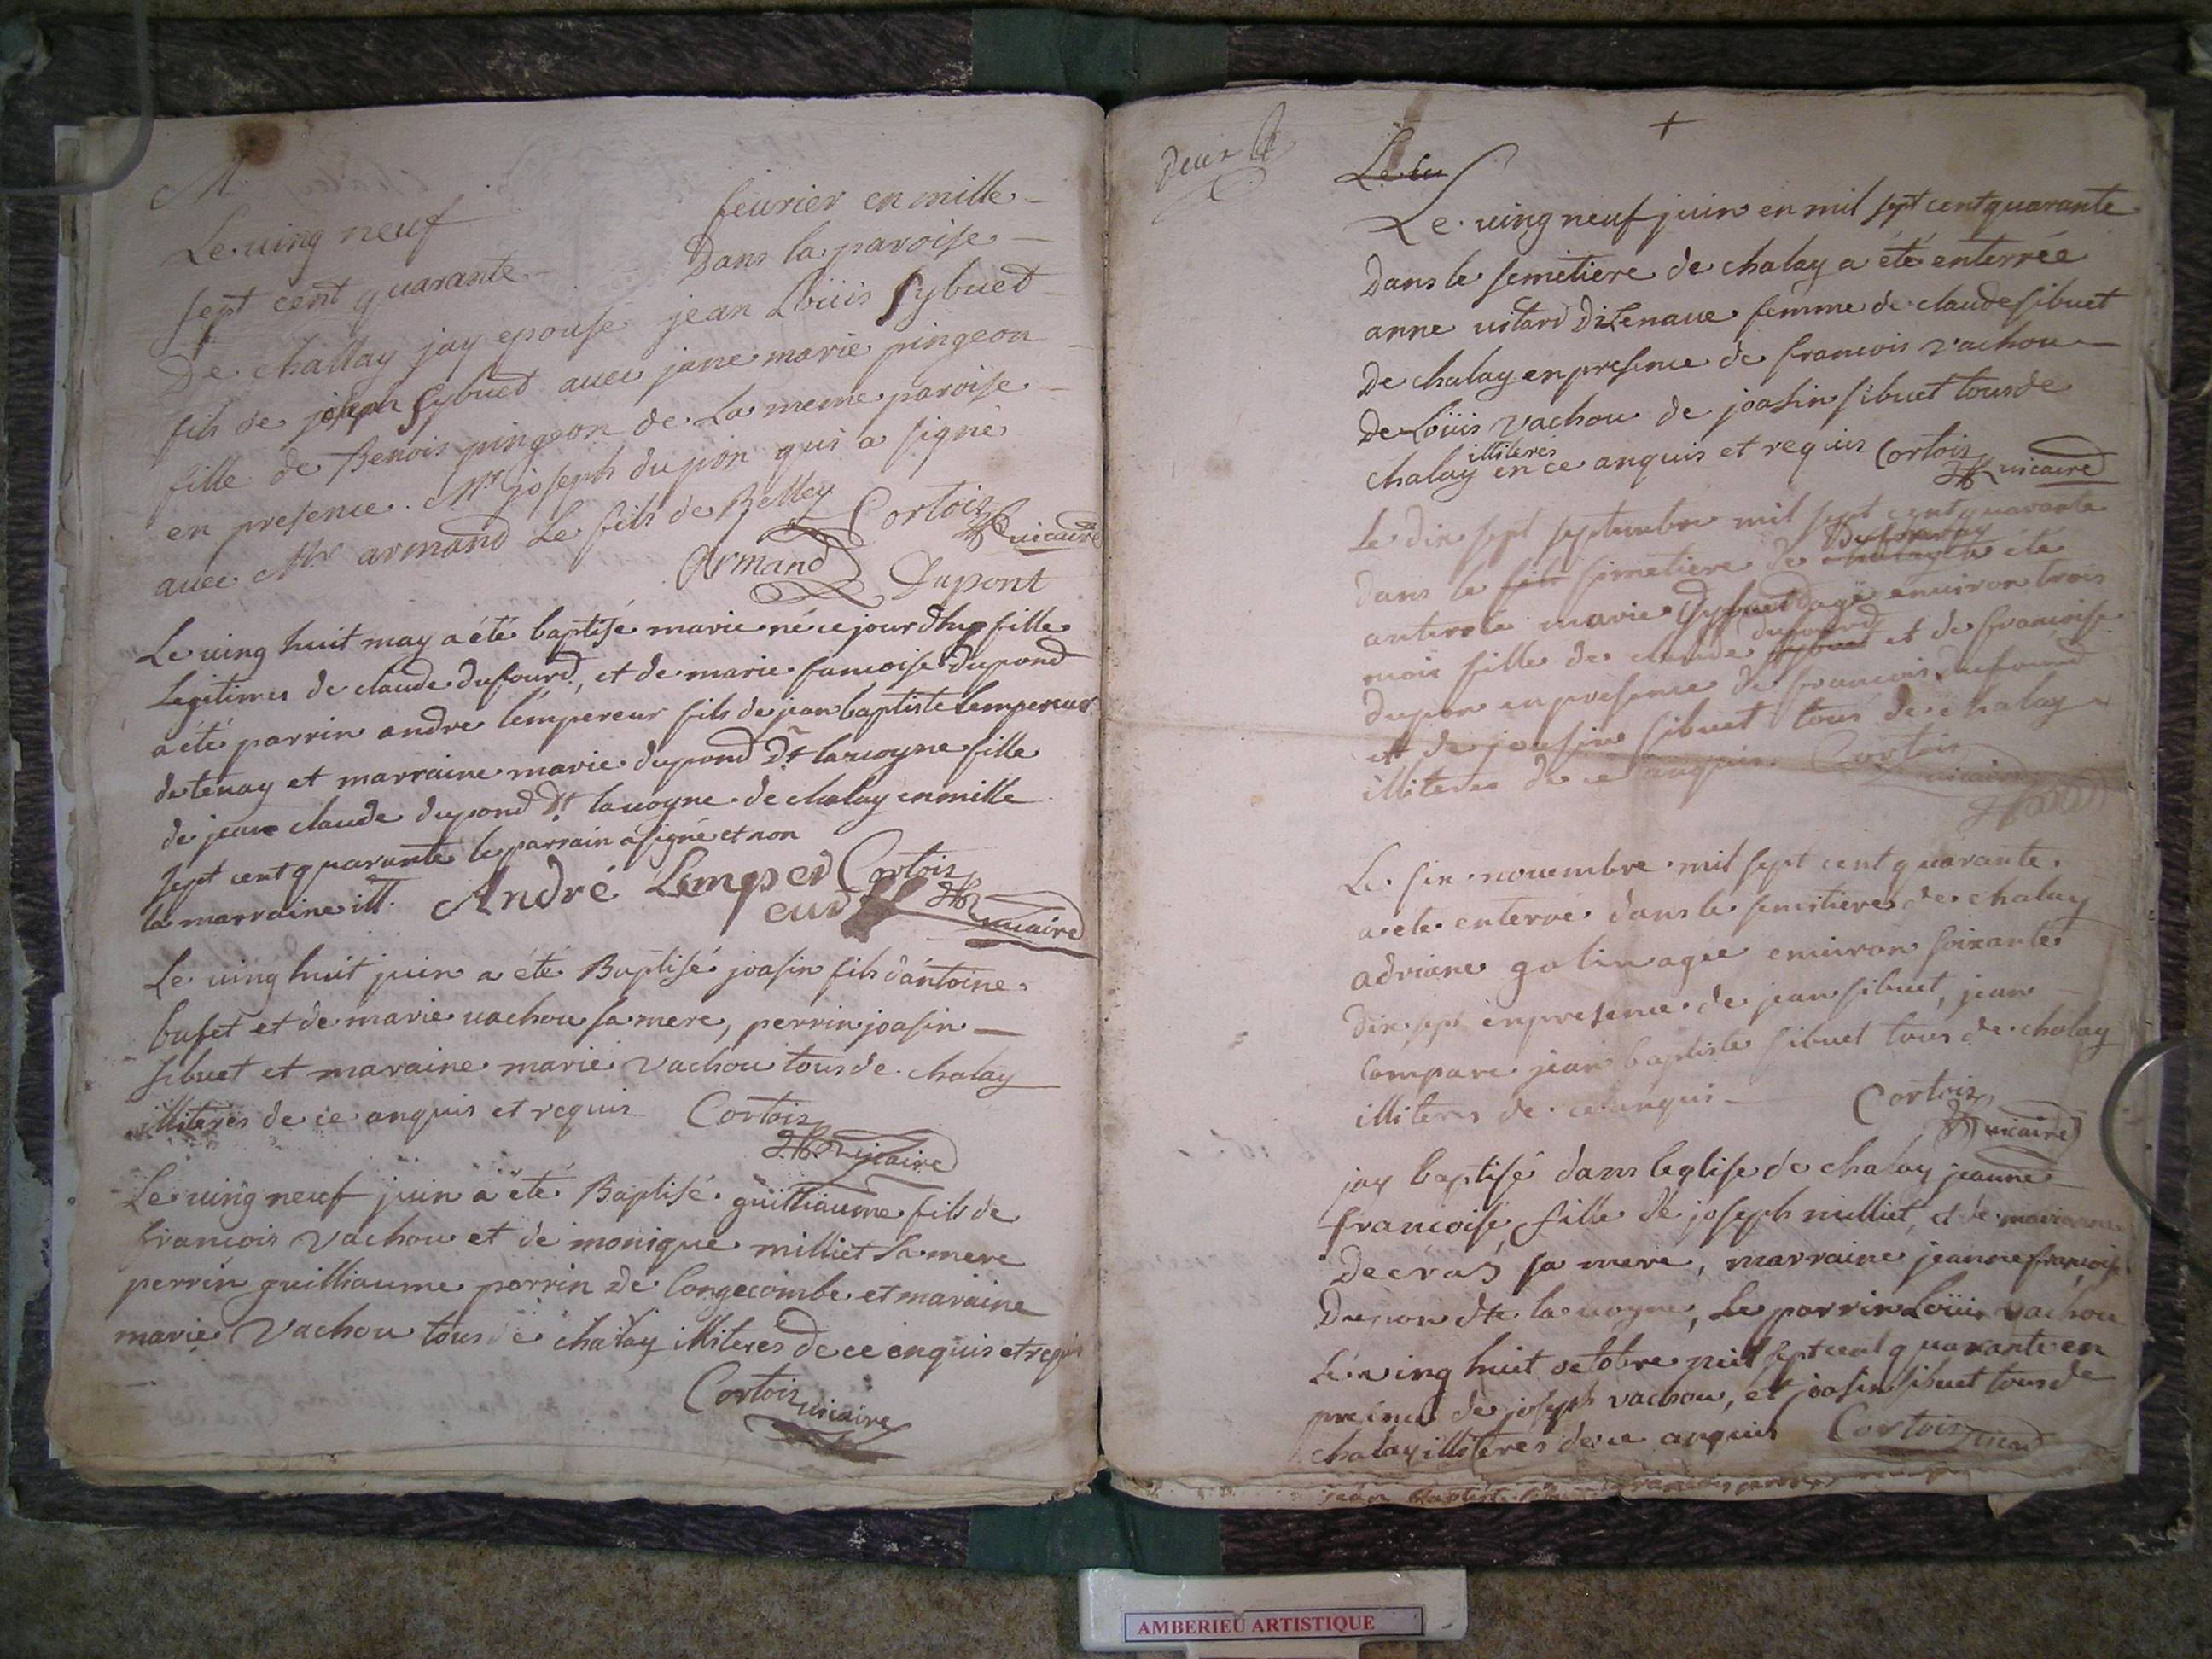 M.
Le ving neuf fevrier en mille
sept cent quarante Dans la paroise
De challay jay epouse jean Loüis Sybuet
fils de joseph Sybuet avec jane marie pingeon
fille de Benois pingeon de La meme paroise
en presence. Mr joseph dupon qui a signé
avec Mr armand Le fils de Belley Cortois
vicaire
Armand Dupont
Le ving huit may a été baptisé marie né ce jourdhuy fille
Legitimes de claude dufourd, et de marie fancoise dupond
a été parrin andre lempereur fils de jean baptiste Lempereur
de tenay et marraine marie dupond Dt lavoyne fille
de jean claude dupond Dt lavoyne de chalay en mille
sept cent quarante le parrain a signé et non
la marraine ill. André Lemper Cortois
eur vicaire
Le ving huit juin a été Baptisé joasin fils dántoine
bufet et de marie vachou sa mere, perrin joasin
sibuet et maraine marie vachou tous de chalay
illiteres de ce anquis et requis Cortois
vicaire
Le ving neuf juin a été Baptisé guilliaume fils de
francois vachou et de monique milliet sa mere
perrin guilliaume perrin de longecombe et maraine
marie vachou tous de chalay illiteres de ce enquis et requis
Cortois vicaire
Deux
Le
Le ving neuf juin en mil sept cent quarante
Dans le semetiere de chalay a été enterrée
anne vitard femme de claude sibuet
De chalay en presence de francois vachou
De Loüis vachou de joasin sibuet tous de
illiteres
chalay en ce anquis et requis Cortois
vicaire
Le dix sept septembre mil sept cent quarante
dans le simetiere de chalay a éte
anterré marie agé environ trois
dufourd
mois fille de claude sybuet et de francoise
dupon en presence de francois dufourd
et de joasin sibuet tous de chalay
illiteres de ce anquis Cortois
vicaire
Le six novembre mil sept cent quarante
a ete enterré dans le semitiere de chalay
adriane golin agée environ soixante
dix sept en presence de jean sibuet, jean
compare jean baptiste sibuet tous de chalay
illiteres de ce anquis
Cortois
vicaire
jay baptisé dans leglise de chalay jeanne
francoise fille de joseph milliet, et de
decras sa mere, marraine jeanne francoise
Dupon dte la voyne, Le parrin Loüis vachou
Le ving huit octobre mil sept cent quarante en
presence de joseph vachou, et joasin sibuet tous de
chalay illiteres de ce anquis Cortois
jean Baptiste
AMBERIEU ARTISTIQUE